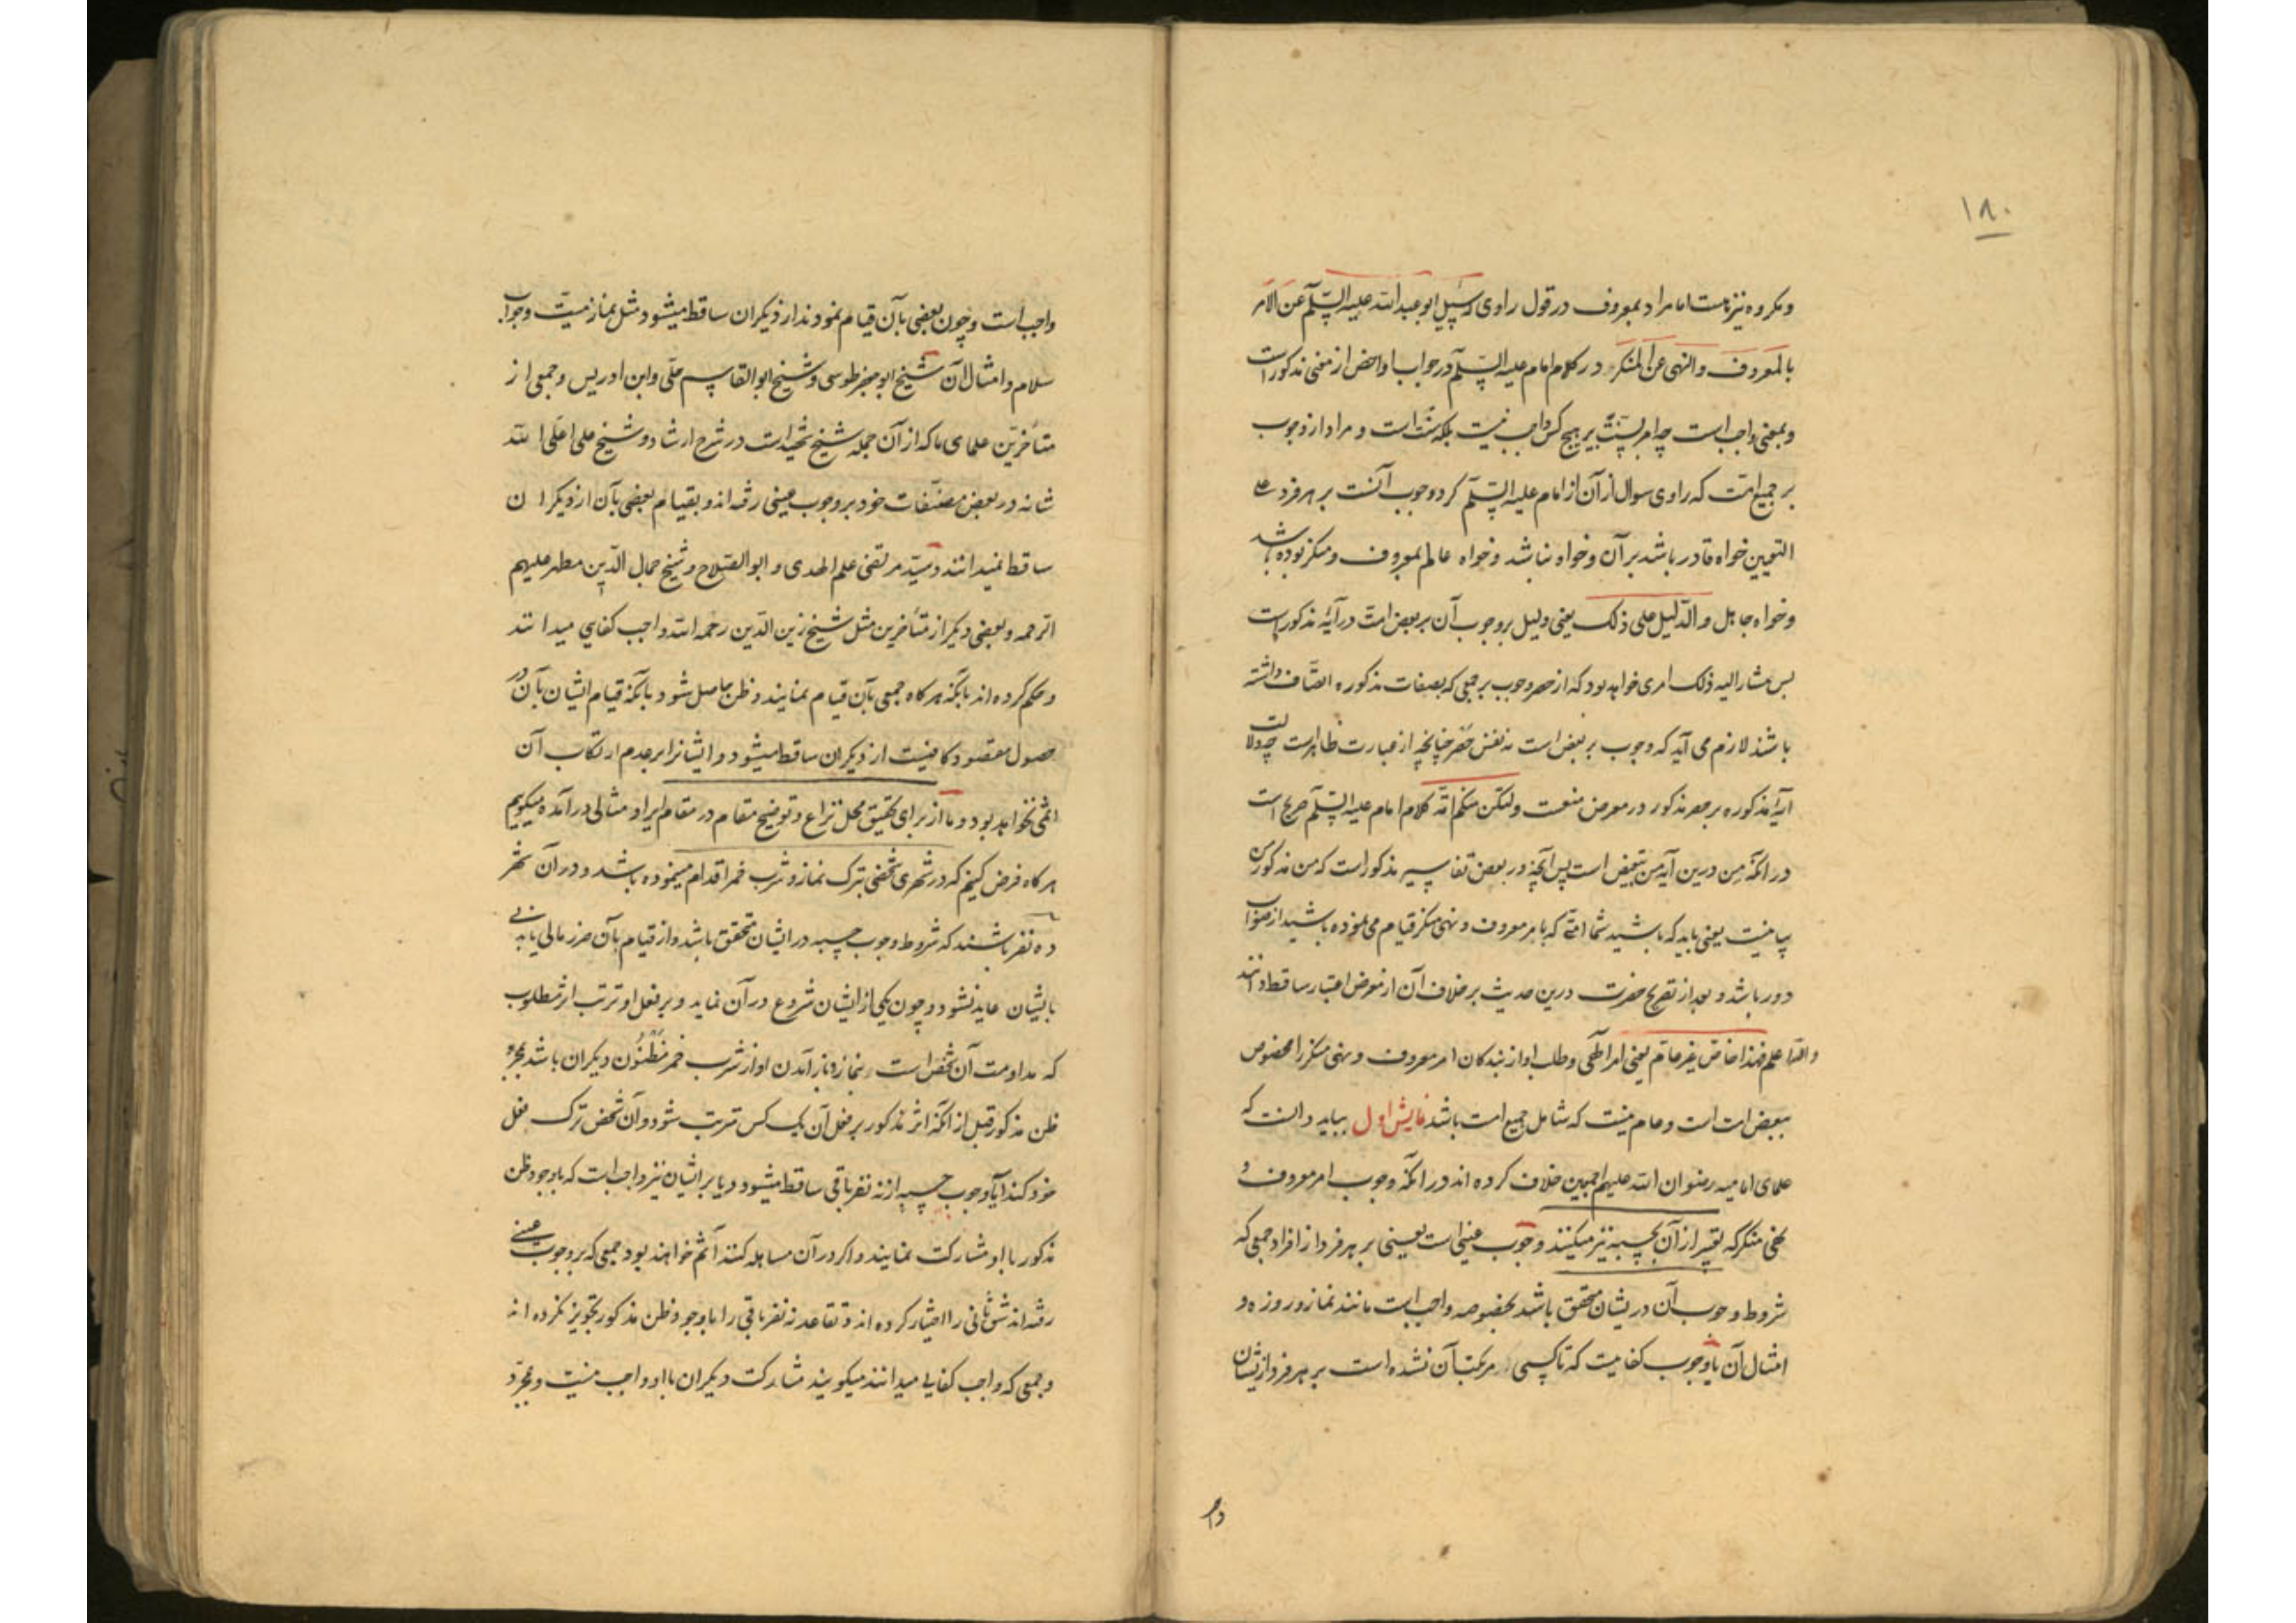 ۱۸۰
و مکروه نیز هست اما مراد بمعروف در قول راوی که سئل ابو عبدالله علیه السّلم عن الامر
بالمعروف والنهی عن المنکر در کلام امام علیه السّلم در جواب او اخص از معنی مذکور است
و بمعنی واجب است چه امر بسنت بر هیچ کس واجب نیست بلکه سنّت است و مراد از وجوب
بر جمیع امت که راوی سوال از آن از امام علیه السّلم کرد وجوب آنست بر هر فرد علی
التعیین خواه قادر باشد بر آن و خواه نباشد و خواه عالم بمعروف و منکر بوده باشد
و خواه جاهل والدّلیل علی ذلک یعنی دلیل بر وجوب آن بر بعض امت در آیهٔ مذکور است
پس مشار الیه ذلک امری خواهد بود که از حصر وجوب بر جمعی که بصفات مذکوره اتصاف داشته
باشند لازم می آید که وجوب بر بعض است نه نفس حصر چنانچه از عبارت ظاهر است چه دلالت
آیهٔ مذکوره بر حصر مذکور در معرض منعست ولتکن منکم امّة کلام امام علیه السّلم صریح است
در آنکه مِن درین آیه من تبعیض است پس آنچه در بعض تفاسیر مذکور است که من مذکور من
بیانیست یعنی باید که باشید شما امتی که بامر معروف و نهی منکر قیام می نموده باشید از صواب
دور باشد و بعد از تصریح حضرت درین حدیث بر خلاف آن از معرض اعتبار ساقط دانند
والله اعلم فهذا خاصّ غیر عامّ یعنی امر الهی و طلب او از بندکان امر معروف و نهی منکر را مخصوص
ببعض امت است و عام نیست که شامل جمیع امت باشد نمایش اول بباید دانست که
علمای امامیه رضوان الله علیهم اجمعین خلاف کرده اند در آنکه وجوب امر معروف و
نهی منکر که تعبیر از آن بحسبه نیز میکنند وجوب عینی است یعنی بر هر فرد از افراد جمعی که
شروط وجوب آن در یشان متحقق باشد بخصوصه واجب است مانند نماز و روزه و
امثال آن یا وجوب کفاییت که تا کسی مرتکب آن نشده است بر هر فرد از یشان
واجب است و چون بعضی بآن قیام نمودند از دیکران ساقط میشود مثل نماز میّت و جواب
سلام و امثال آن شیخ ابو جعفر طوسی و شیخ ابو القاسم حلّی و ابن ادریس و جمعی از
متأخرین علمای ما که از آن جمله شیخ شهید است در شرح ارشاد و شیخ علی اعلی الله
شانه در بعض مصنّفات خود بر وجوب عینی رفته اند و بقیام بعضی بآن از دیکران
ساقط نمیدانند و سیّد مرتضی علم الهدی و ابو الصلاح و شیخ جمال الدّین مطهر علیهم
الرحمه و بعضی دیکر از متأخرین مثل شیخ زین الدّین رحمه الله واجب کفایی میدانند
و حکم کرده اند بآنکه هر کاه جمعی بآن قیام نمایند و ظن حاصل شود بآنکه قیام ایشان بآن در
حصول مقصود کافیست از دیکران ساقط میشود و ایشانرا بر عدم ارتکاب آن
اثمی نخواهد بود و ما از برای تحقیق محل نزاع و توضیح مقام در مقام ایراد مثالی در آمده میکوییم
هر کاه فرض کنیم که در شهری شخصی بترک نماز و شرب خمر اقدام مینموده باشد و در آن شهر
ده نفر باشند که شروط وجوب حسبه در ایشان متحقق باشد و از قیام بآن ضرر مالی یا بدنی
بایشان عاید نشود و چون یکی از ایشان شروع در آن نماید و بر فعل او ترتب اثر مطلوب
که مداومت آن شخص است بنماز و باز آمدن او از شرب خمر مَظْنُون دیکران باشد بمجرد
ظن مذکور قبل از آنکه اثر مذکور بر فعل آن یک کس مترتب شود و آن شخص ترک فعل
خود کند آیا وجوب حسبه از نه نفر باقی ساقط میشود و یا بر ایشان نیز واجب است که با وجود ظن
مذکور با او مشارکت نمایند و اکر در آن مساهله کنند آثم خواهند بود جمعی که بر وجوب عینی
رفته اند شق ثانی را اختیار کرده اند و تقاعد نه نفر باقی را با وجود ظن مذکور تجویز نکرده اند
و جمعی که واجب کفایی میدانند میکویند مشارکت دیکران با او واجب نیست و بمجرّد